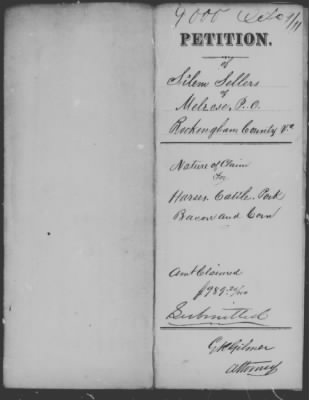 9000
PETITION.
of
Silem Sellers
of
Melrose P.O.
Rockingham County Va
Nature of Claim
For
Horses Cattle Pork
Bacon and Corn
Amt Claimed
Submitted
G H Gilmer
Attorney